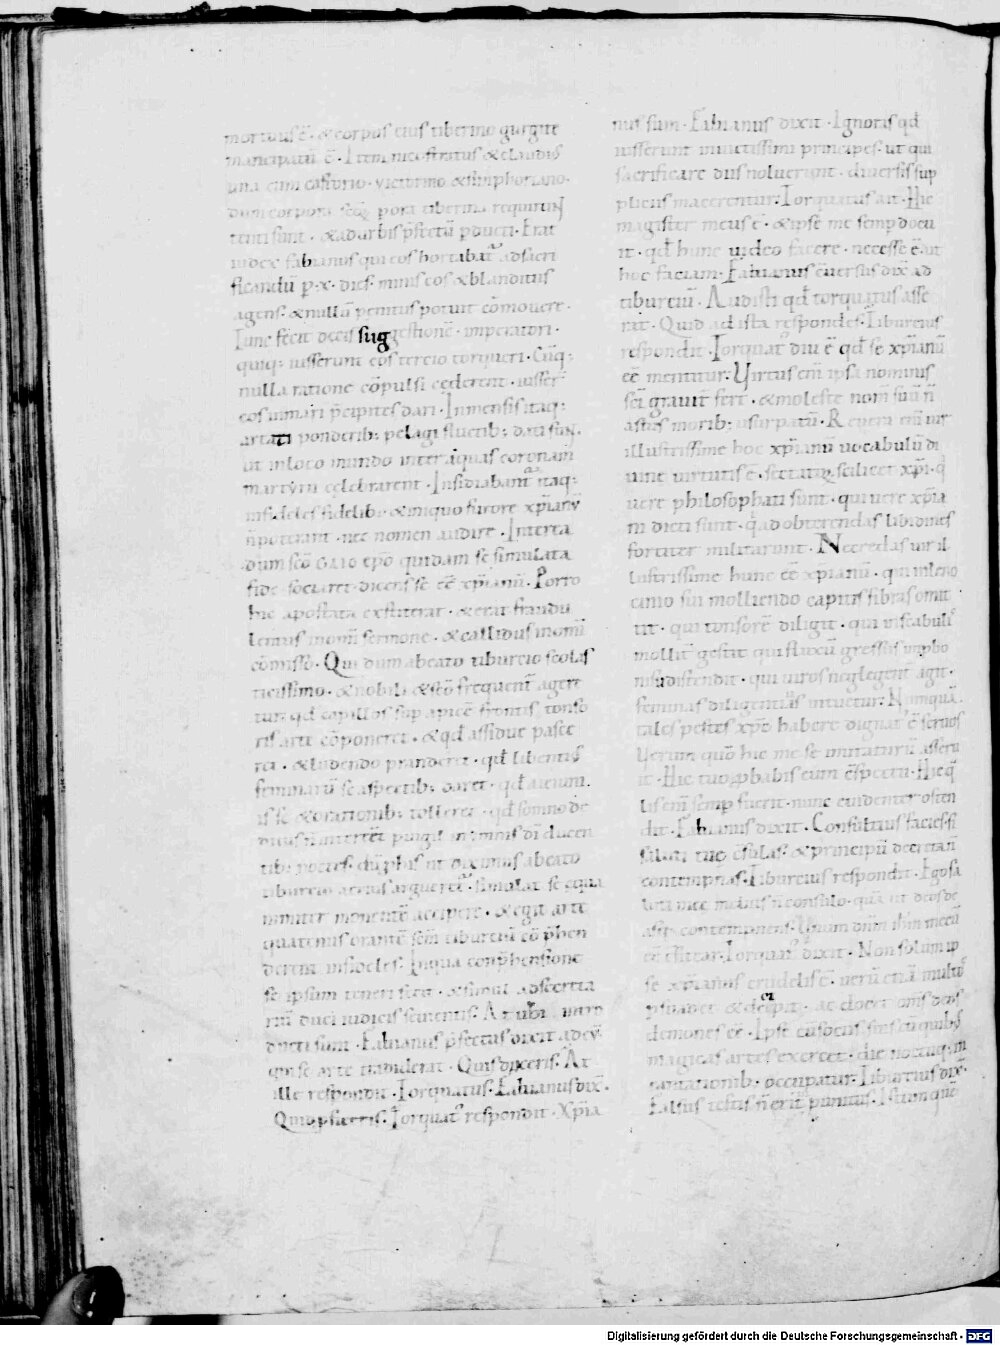 mortuus ē. & corpus eius tiberino gurgite
mancipatū ē. Item nicostratus & claudiꝰ
una cum castorio. victorino & simphoriano.
dum corpora scōꝝ pora tiberina requirunt
tenti sunt. & ad urbis p̄fectū ꝑducti. Erat
iudex fabianus qui eos hortabat᷑ ad sacri
ficandū p. x. dies. minis eos & blanditiis
agens. & nullā penitus potuit cōmouere.
Tunc fecit de eis suggestionē. imperatori.
quiq; iusserunt eos tercio torqueri. Cūq;
nulla ratione cōpulsi cederent. iusser̄
eos in mari p̄cipites dari. Inmensis itaq;
artati ponderib; pelagi fluctib; dati sunt.
ut in loco mundo inter aquas coronam
martyrii celebrarent. Insidiabant᷑ itaq;
infideles fidelib; & iniquo furore xp̄ianū
n̄ poterant. nec nomen audire. Interea
dum scō gaio ep̄o quidam se simulata
fide sociaret. dicens se eē xp̄ianū. Porro
hic apostata extiterat. & erat fraudu
lentus in om̄i sermone. & callidus in om̄i
cōmisso. Qui dum a beato tiburcio scolas
ticissimo. & nobili & scō frequent̄ agere
tur qd̄ capillos sup apicē frontis tonso
ris arte cōponeret. & qd̄ assidue pasce
ret. & ludendo pranderet. qd̄ libentiꝰ
feminarū se aspectib; daret. qd̄ ieiuni
is se & orationib; tolleret. qd̄ somno de
ditus n̄ interēēt puigil in ymnis dī ducen
tib; noctes. dū p̄ his ut diximus a beato
tiburcio acrius argueret᷑. simulat se equa
nimiter monentē accipere. & egit arte
quatenus orantē scm̄ tiburciū cōp̄hen
derent infideles. In qua conp̄hensione
se ipsum teneri fecit. & simul ad secreta
riū duci iudicis seuientis. At ubi intro
ducti sunt. Fabianus p̄fectus dixit ad eū.
qui se arte tradiderat. Quis diceris. At
ille respondit. Torquatus. Fabianus dix̄.
Quid ꝓfiteris. Torquat᷒ respondit. Xp̄ia
nus sum. Fabianus dixit. Ignoras qd̄
iusserunt inuictissimi principes. ut qui
sacrificare diis noluerint. diuersis sup
pliciis macerentur. Torquatus ait. Hic
magister meus ē. & ipse me semp docu
it. qd̄ hunc uideo facere. necesse ē. ut
hoc faciam. Fabianus cōuersus dix̄ ad
tiburciū. Audisti qd̄ torquatus asse
rat. Quid ad ista respondes. Tiburcius
respondit. Torquat᷒ diu ē qd̄ se xp̄ianū
eē mentitur. Virtus em̄ ipsa nominis
sc̄i grauit̄ fert. & moleste nom̄ suū n̄
a suis morib; usurpatū. Re uera em̄ uir
illustrissime hoc xp̄ianū uocabulū di
uine uirtutis ē. sectatoꝝ scilicet xp̄i. qͥ
uere philosophati sunt. qui uere xp̄ia
ni dicti sunt. q̄ ad obterendas libidines
fortiter militarunt. Ne credas uir il
lustrissime hunc eē xp̄ianū. qui in leno
cinio sui molliendo capitis fibras omit
tit. qui tonsorē diligit. qui in scabuliꝰ
mollit̄ gestit qui fluxū gressus improbo
nisu distendit. qui uiros neglegent̄ agit.
feminas diligentiꝰ intuetur. Numquā
tales pestes xp̄c habere dignat᷒ ē seruos
Uerum quō hic me se imitaturū asseru
it. Hic tuo ꝓbabis eum cōspectu. Hic q̄
lis em̄ semp fuerit. nunc euidenter osten
dit. Fabianus dixit. Consultius facies. si
saluti tue cōsulas. & principū decreta n̄
contempnas. Tiburcius respondit. Ego sa
luti mee melius n̄ consulo. quā ut deos de
asq; contempnens. Unum dn̄m ihm̄ meū
eē cōfitear. Torquat᷒ dixit. Non solum ip
se xp̄ianus crudelis ē. uerū etiā multoꝰ
ꝑsuadet & decipit. ac docet om̄s deos
demones eē. Ipse eius deus sensū quibus
magicas artes exercet. die noctuq; in
cantationib; occupatur. Tiburtius dix̄.
Falsus testis n̄ erit īpunitus. Istum quē
Digitalisierung gefördert durch die Deutsche Forschungsgemeinschaft - DFG